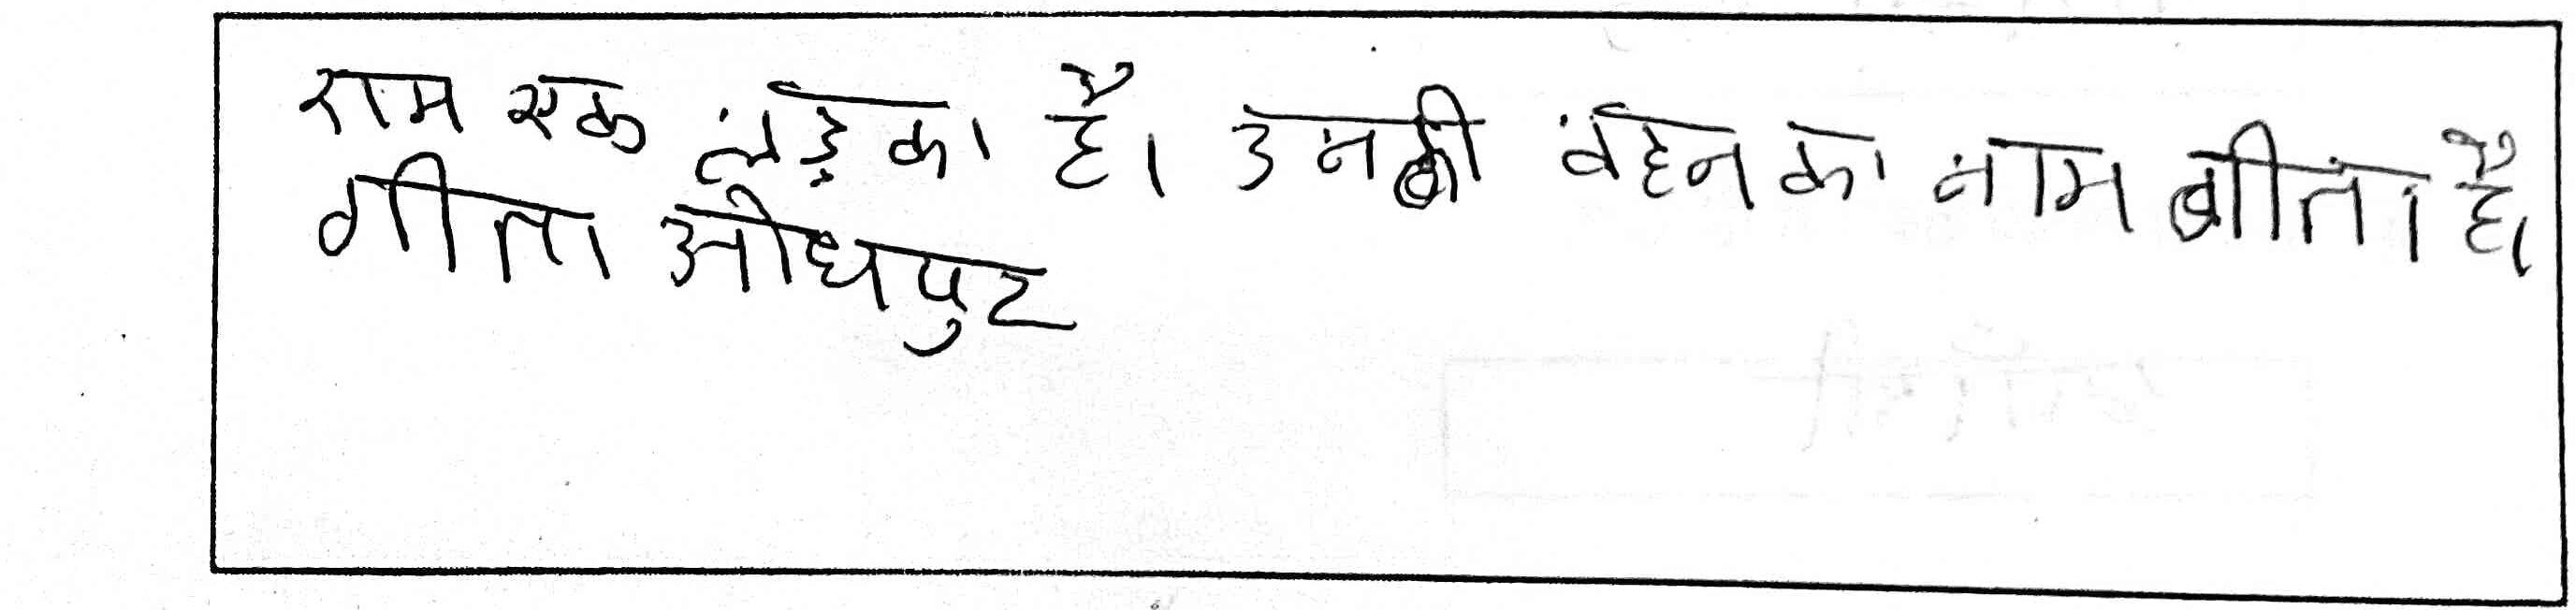 राम एक लड़का है। उनकी वहन का नाम गीता है।
गीता ओधपुर